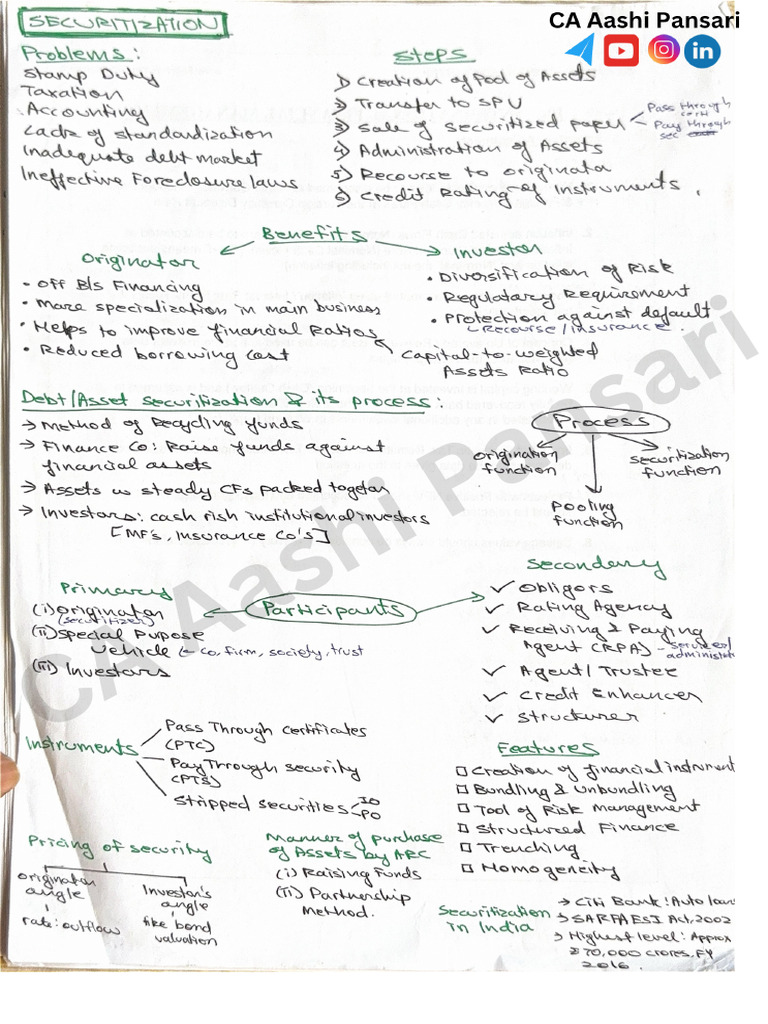 SECURITIZATION
CA Aashi Pansari
Problems:
Stamp Duty
Taxation
Accounting
Lack of standardization
Inadequate debt market
Ineffective Foreclosure laws
Steps
1) Creation of Pool of Assets
2) Transfer to SPV
3) Sale of securitized paper
Pass through cert
Pay through sec
4) Administration of Assets
5) Recourse to originator
6) Credit Rating of Instruments.
Benefits
Originator
• Off B/s Financing
• More specialization in main business
• Helps to improve financial Ratios
• Reduced borrowing cost
Capital-to-weighted
Assets Ratio
Investor
• Diversification of Risk
• Regulatory Requirement
• Protection against default
Recourse/insurance.
Debt/Asset securitization & its process:
→ Method of Recycling funds
→ Finance Co: Raise funds against
financial assets
→ Assets w steady CFs packed together
→ Investors: cash rish institutional investors
[MF's, Insurance Co's]
Process
origination
function
Pooling
function
securitization
function
Participants
Primary
(i) Originator
(securitizer)
(ii) Special Pupose
Vehicle
co, firm, society, trust
(iii) Investors
Secondary
✓ Obligors
✓ Rating Agency
✓ Receiving & Paying
Agent (RPA) - servicer/
administrat
✓ Agent/Trustee
✓ Credit Enhancer
✓ Structurer
Instruments
Pass Through certificates
(PTC)
Pay Through security
(PTS)
Stripped securities
IO
PO
Features
Creation of financial instrument
Bundling & Unbundling
Tool of Risk management
Structured Finance
Trenching
Homogeneity
Pricing of security
originator
angle
rate: outflow
Investor's
angle
like bond
valuation
Manner of purchase
of Assets by ARC
(i) Raising Funds
(ii) Partnership
Method.
Securitization
in India
→ Citi Bank: Auto loans
→ SARFAESI Act, 2002
→ Highest level: Approx
₹ 70,000 crores. FY
2016.
CA Aashi Pansari